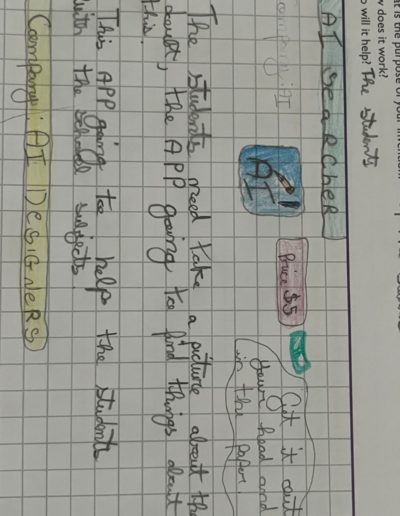 at is the purpose of your invention
w does it work?
o will it help? The students
AI SeaRCheR
Company: AI
AI
Price $5
Get it out
your head and
in the paper.
The students need take a picture about the
doubt, the APP going to find things about
this.
This APP going to help the students
with the school subjects.
Company: AI DesigneRs